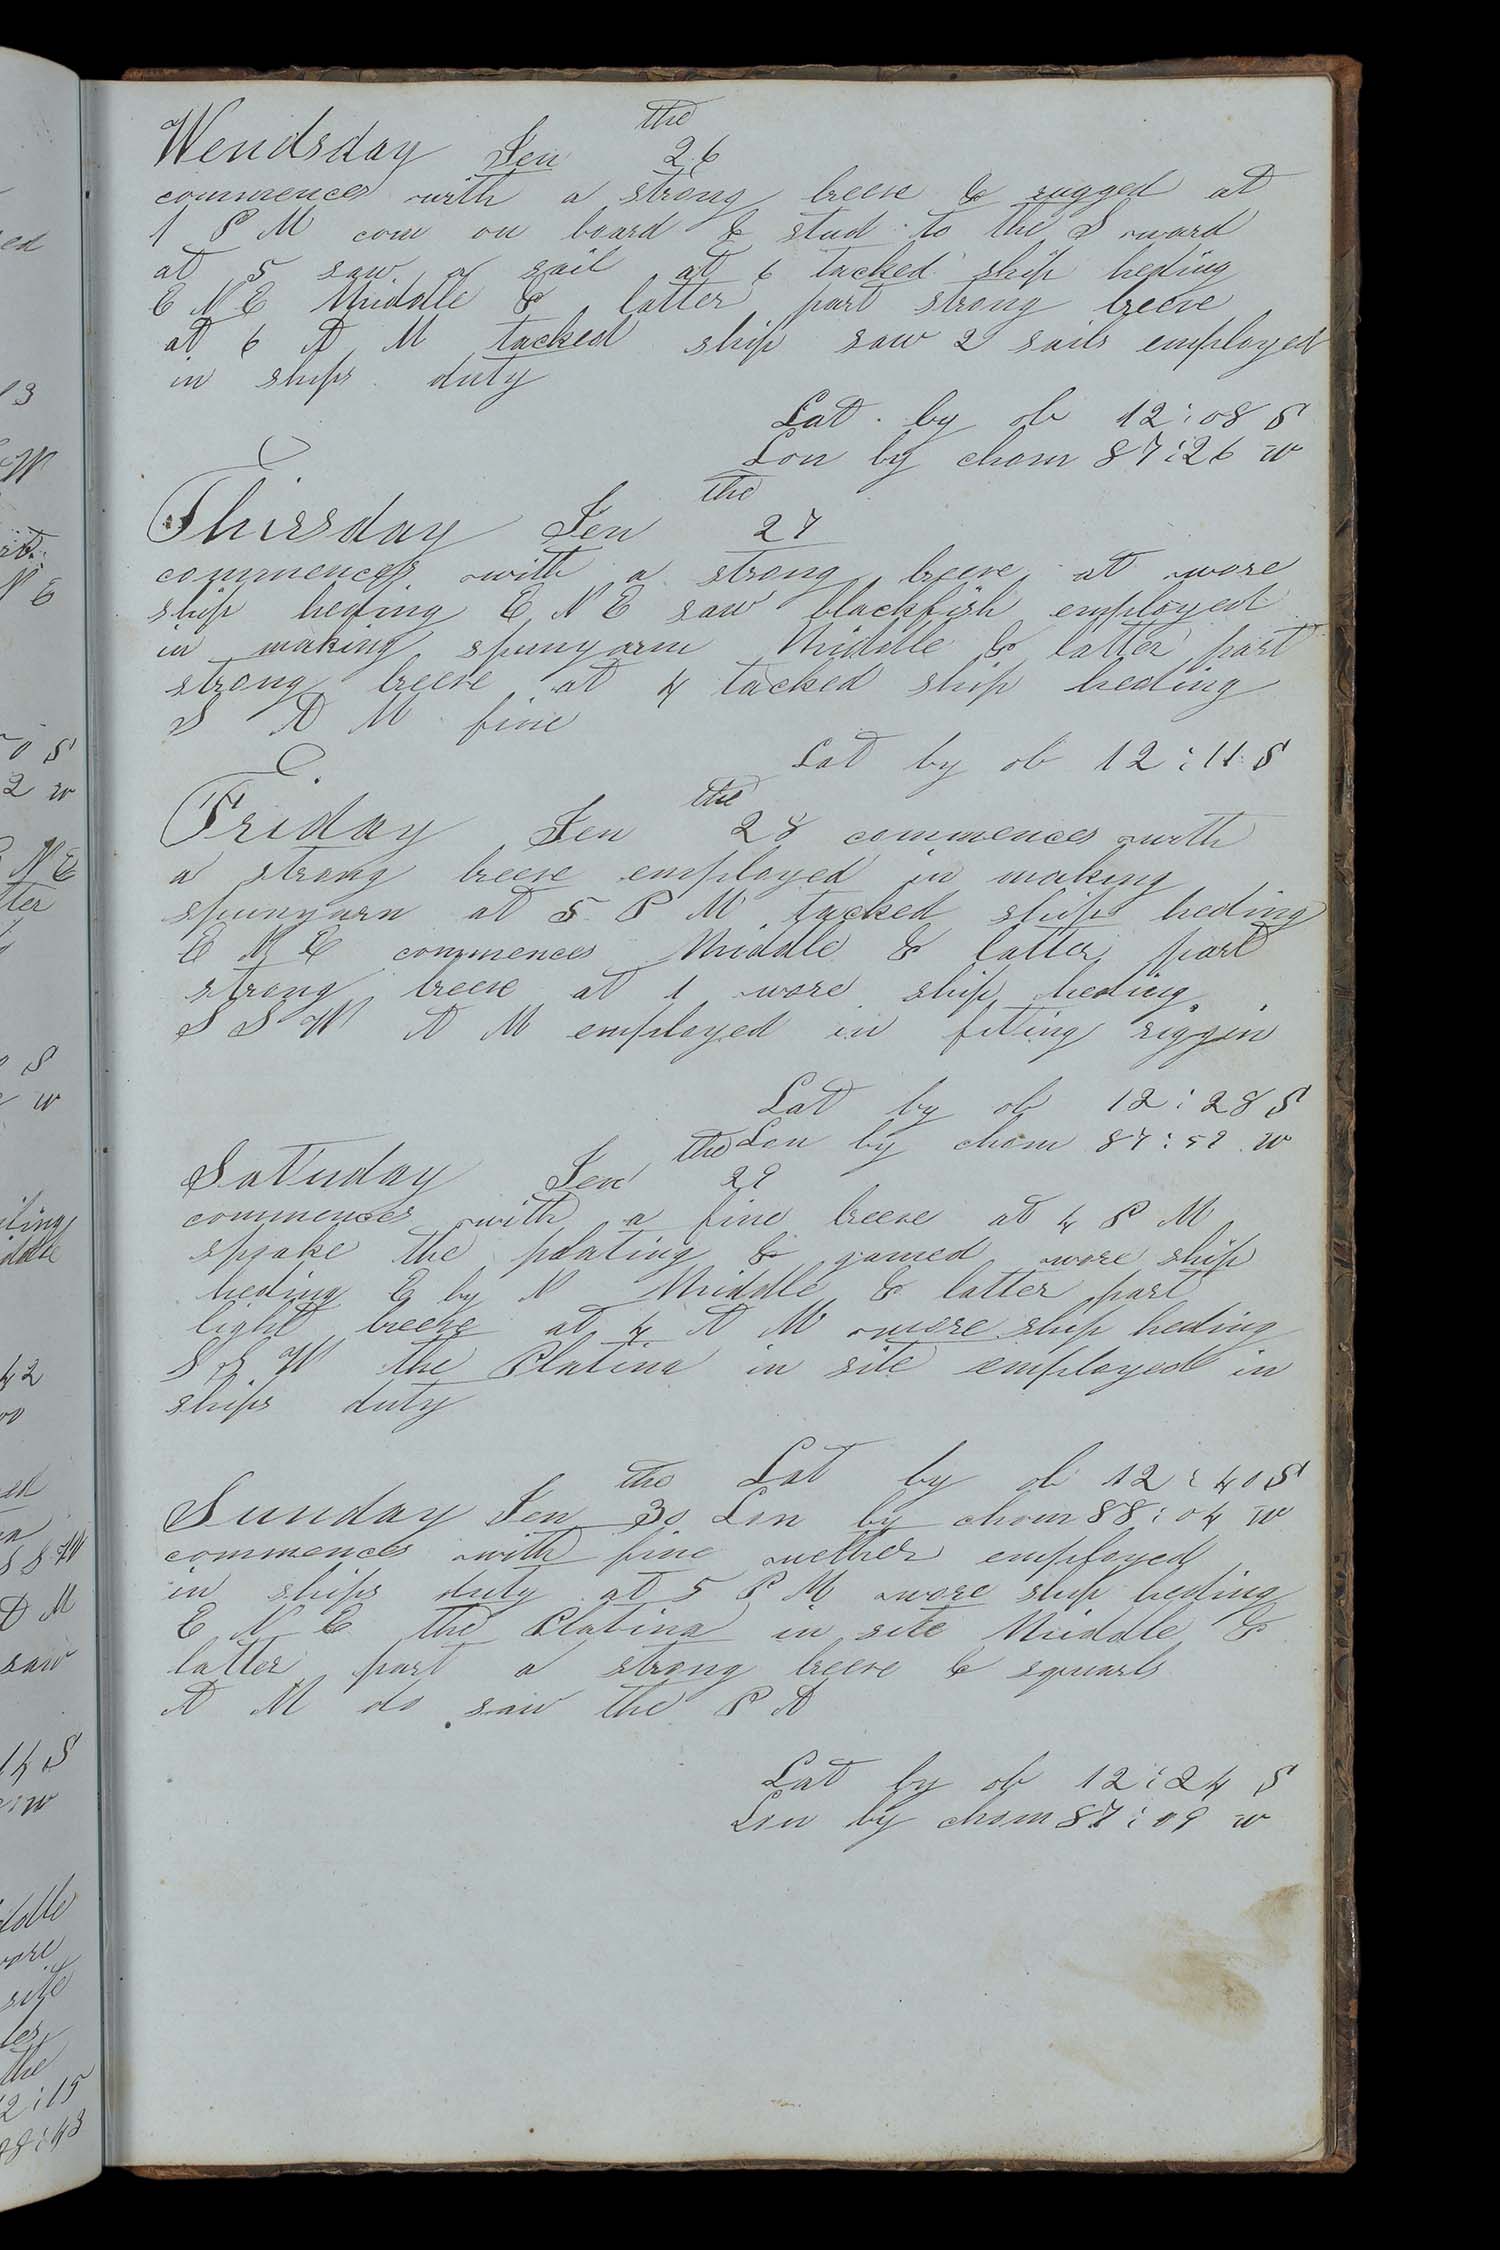 Wendsday Jen the 26
commences with a strong breeze & rugged at
1 P M com on board & stud to the S ward
at 5 saw a sail at 6 tacked ship heding
E N E Middle & latter part strong breeze
at 6 A M tacked ship saw 2 sails employed
in ships duty
Lat by ob 12:08 S
Lon by chom 87:26 w
Thirsday Jen the 27
commences with a strong breeze at wore
ship heding E N E saw blackfish employed
in making spunyarn Middle & latter part
strong breeze at 4 tacked ship heding
S A M fine
Lat by ob 12:11 S
Friday Jen the 28 commences with
a strong breeze employed in making
spunyarn at 5 P M tacked ship heding
E N E commences Middle & latter part
strong breeze at 1 wore ship heding
S S W A M employed in fiting riggin
Lat by ob 12:28 S
Lon by chom 87:59 w
Satuday Jen the 29
commences with a fine breeze at 4 P M
spoake the plating & gamed wore ship
heding E by N Middle & latter part
light breeze at 4 A M wore ship heding
S S W the Platina in site employed in
ships duty
Lat by ob 12:40 S
Sunday Jen the 30 Lon by chom 88:04 w
commences with fine wether employed
in ships duty at 5 P M wore ship heding
E N E the Platina in site Middle &
latter part a strong breeze & squarls
A M do saw the P A
Lat by ob 12:24 S
Lon by chom 87:09 w